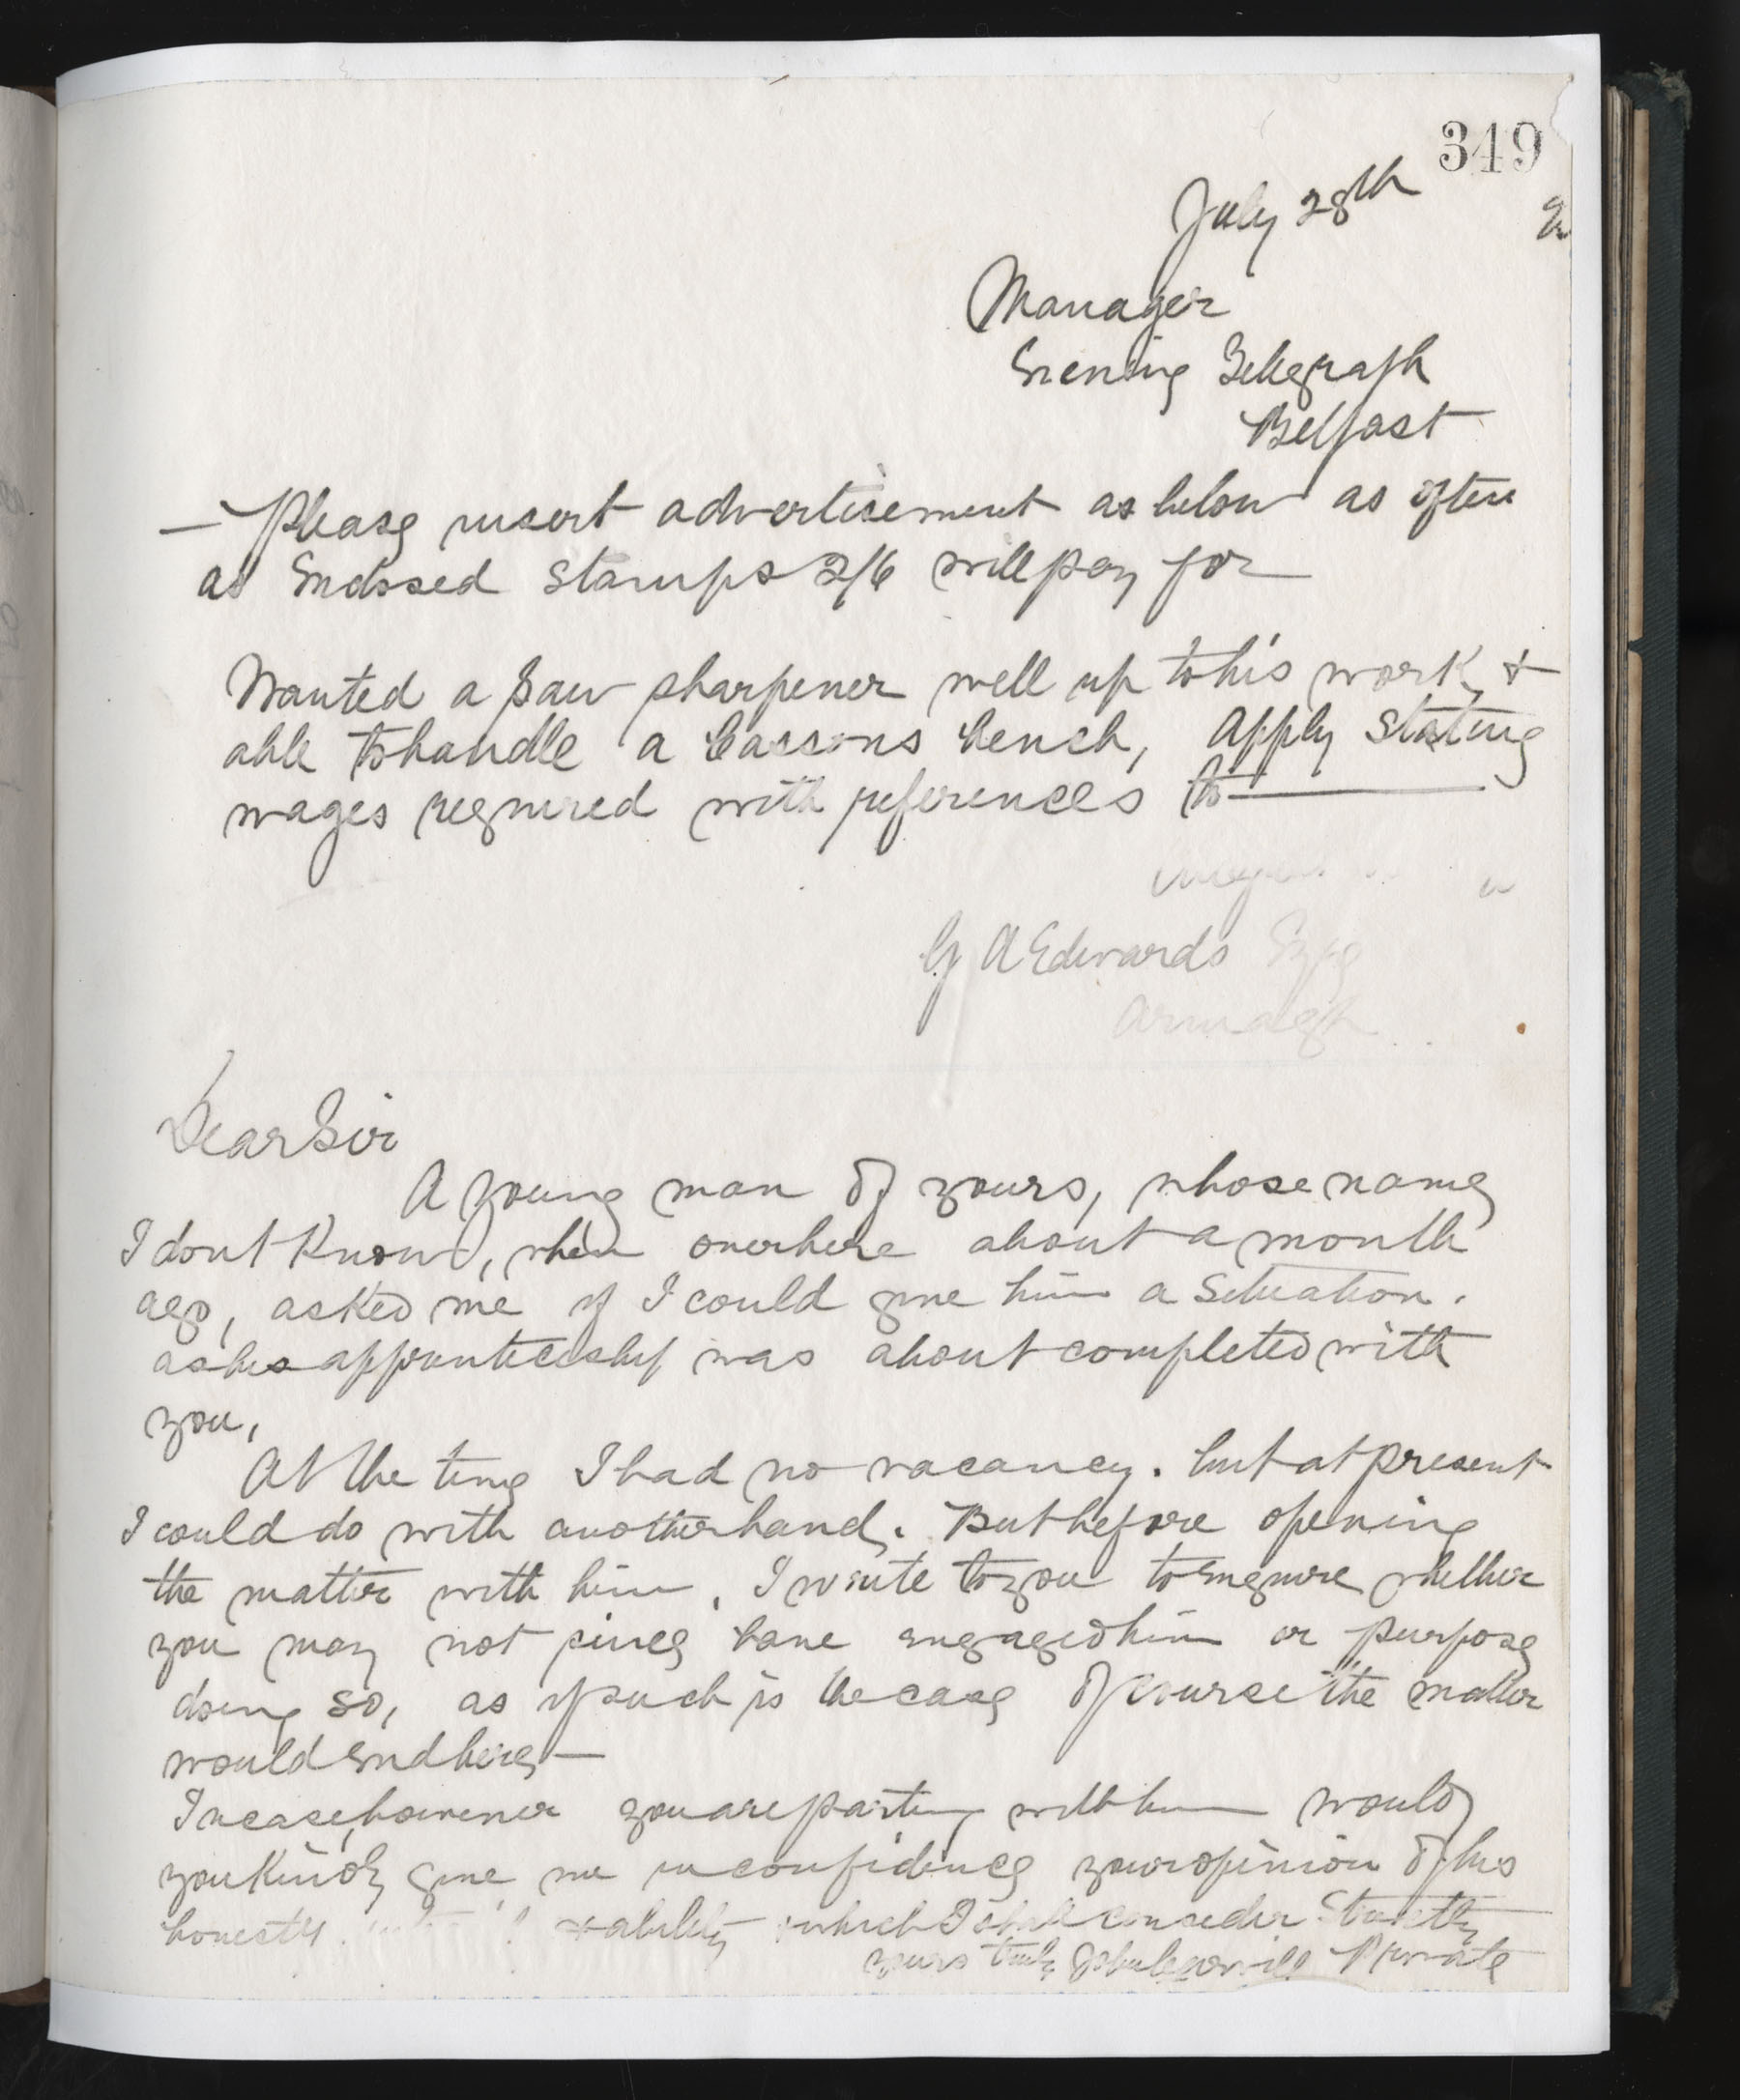 349
July 28th
Manager
Evening Telegraph
Belfast
— Please insert advertisement as below as often
as Enclosed Stamps 2/6 will pay for
Wanted a Saw sharpener well up to his work, &
able to handle a Cassons bench, Apply Stating
wages required with references to
G A Edwards Esq
Armagh
Dear Sir
A young man of yours, whose name
I dont Know, when over here about a month
ago, asked me if I could give him a Situation.
as his apprenticeship was about completed with
you,
At the time I had no vacancy. but at present
I could do with another hand. But before opening
the matter with him, I write to you to Enquire whether
you may not since have engaged him or purpose
doing so, as if such is the case of course the matter
would End here —
In case, however you are parting with him would
you Kindly give me in confidence your opinion of his
honesty & ability which I shall consider Strictly
yours truly Private